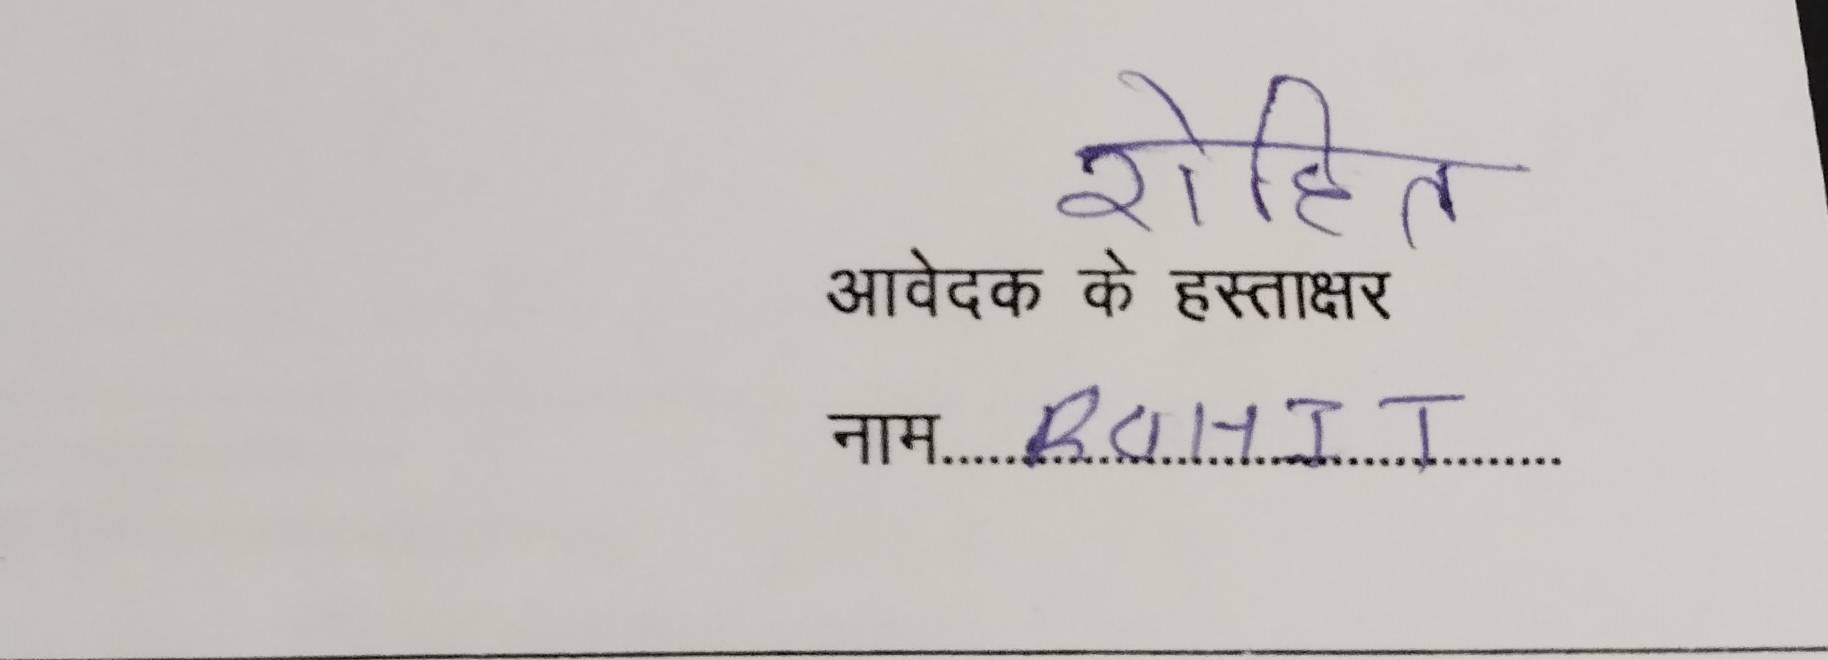 रोहित
आवेदक के हस्ताक्षर
नाम.....ROHIT.....